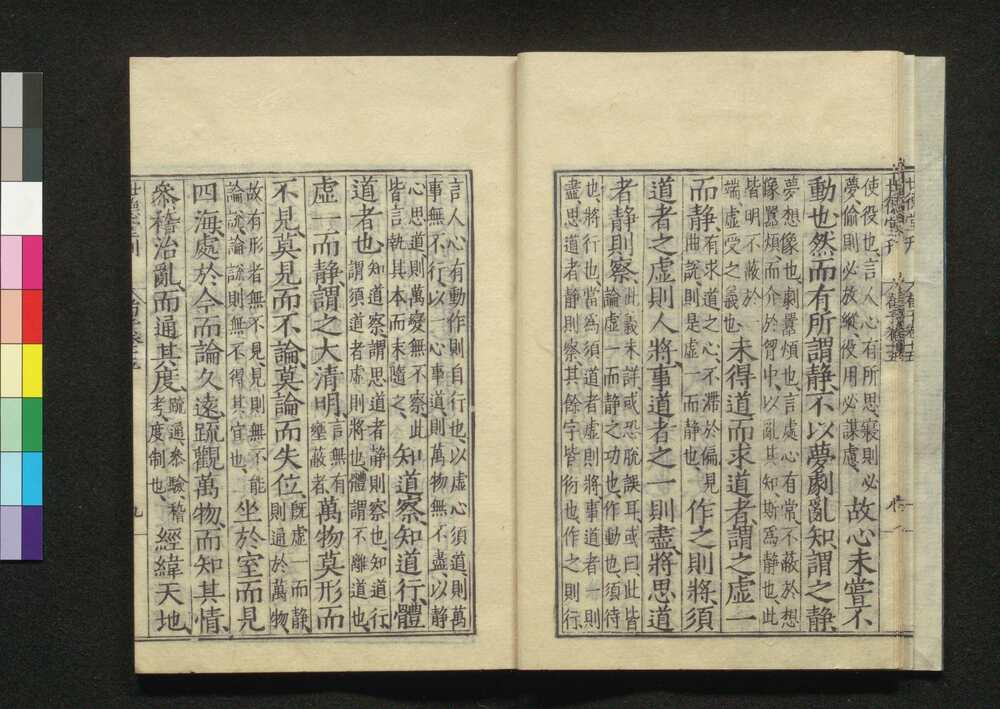 使役也、言人心有所思、寢則必
夢、偷則必放縱、役用必謀慮、
故心未嘗不
動也、然而有所謂静、不以夢劇亂知、謂之静、
夢想像也、劇囂煩也、言處心有常、不蔽於想
像囂煩、而介於胷中、以亂其知、斯爲静也、此
皆明不蔽於一
端虛受之義也、
未得道、而求道者、謂之虛一
而静、
有求道之心、不滯於偏見
曲說、則是虛一而静也、
作之則將須
道者之虛則人將、事道者之一則盡、將思道
者静則察、
此義未詳、或恐脫誤耳、或曰此皆
論虛一而静之功也、作動也、須待
也、將行也、當爲須道者虛則將、事道者一則
盡、思道者静則察、其餘字皆衍也、作之則行、
言人心有動作則自行也、以虛心須道、則萬
事無不行、以一心事道、則萬物無不盡、以静
心思道、則萬變無不察、此
皆言執其本而末隨之、
知道察、知道行、體
道者也、
知道察、謂思道者静則察也、知道行、
謂須道者虛則將也、體謂不離道也、
虛一而静、謂之大清明、
言無有
壅蔽者、
萬物莫形而
不見、莫見而不論、莫論而失位、
旣虛一而静、
則通於萬物、
故有形者無不見、見則無不能
論說、論說則無不得其宜也、
坐於室而見
四海、處於今而論久遠、疏觀萬物、而知其情、
參稽治亂、而通其度、
疏通、參驗、稽
考、度制也、
經緯天地、